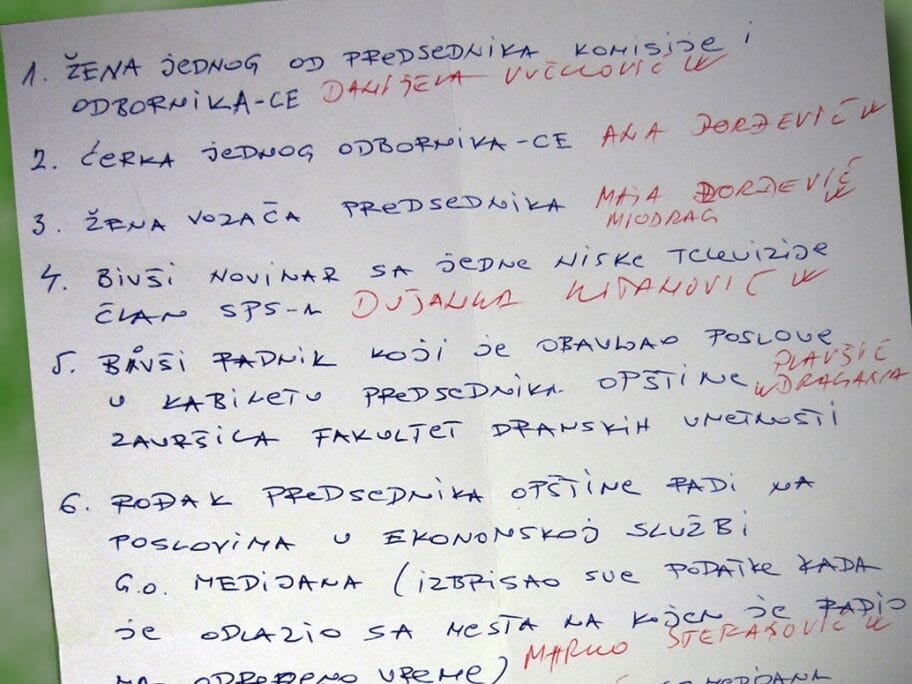 1. ŽENA JEDNOG OD PREDSEDNIKA KOMISIJE I
ODBORNIKA-CE DANIJELA VUČKOVIĆ
2. ĆERKA JEDNOG ODBORNIKA-CE ANA ĐORĐEVIĆ
3. ŽENA VOZAČA PREDSEDNIKA MAJA ĐORĐEVIĆ
MIODRAG
4. BIVŠI NOVINAR SA JEDNE NIŠKE TELEVIZIJE
ČLAN SPS-A DUŠANKA
5. BIVŠI RADNIK KOJI JE OBAVLJAO POSLOVE
U KABINETU PREDSEDNIKA OPŠTINE PLAVŠIĆ
DRAGANA
ZAVRŠILA FAKULTET DRAMSKIH UMETNOSTI
6. ROĐAK PREDSEDNIKA OPŠTINE RADI NA
POSLOVIMA U EKONOMSKOJ SLUŽBI
G.O. MEDIJANA (IZBRISAO SVE PODATKE KADA
JE ODLAZIO SA MESTA NA KOJEM JE RADIO
NA ODREĐENO VREME) MARKO STEFANOVIĆ
MEDIJANA